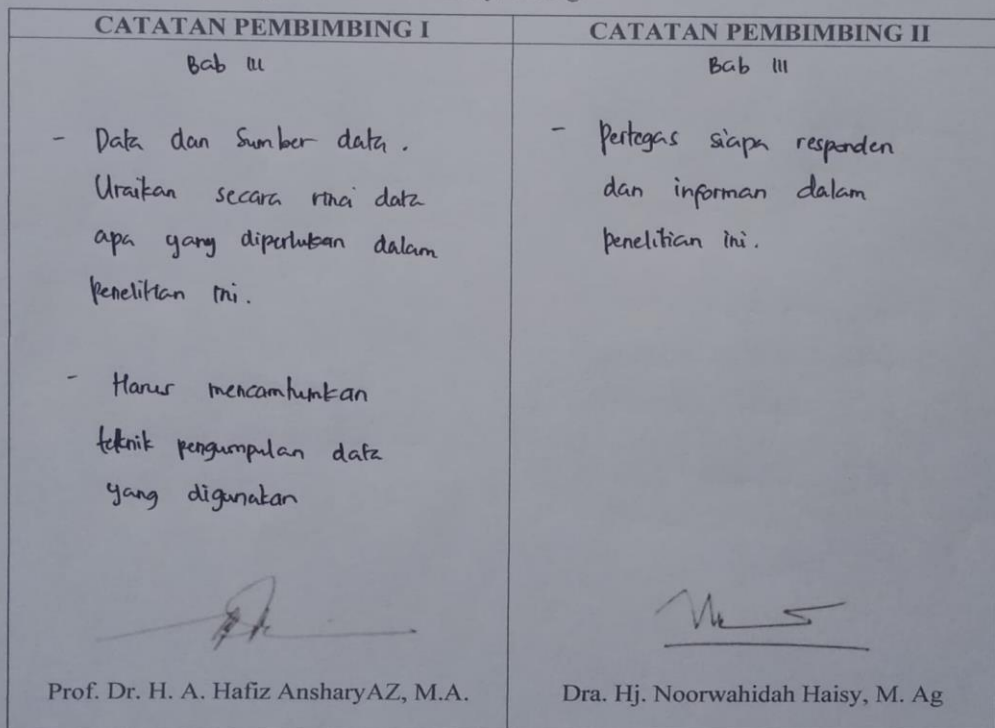 CATATAN PEMBIMBING I
Bab III
- Data dan Sumber data.
Uraikan secara rinci data
apa yang diperlukan dalam
penelitian ini.
- Harus mencamtumkan
teknik pengumpulan data
yang digunakan
Prof. Dr. H. A. Hafiz AnsharyAZ, M.A.
CATATAN PEMBIMBING II
Bab III
- Pertegas siapa responden
dan informan dalam
penelitian ini.
Dra. Hj. Noorwahidah Haisy, M. Ag